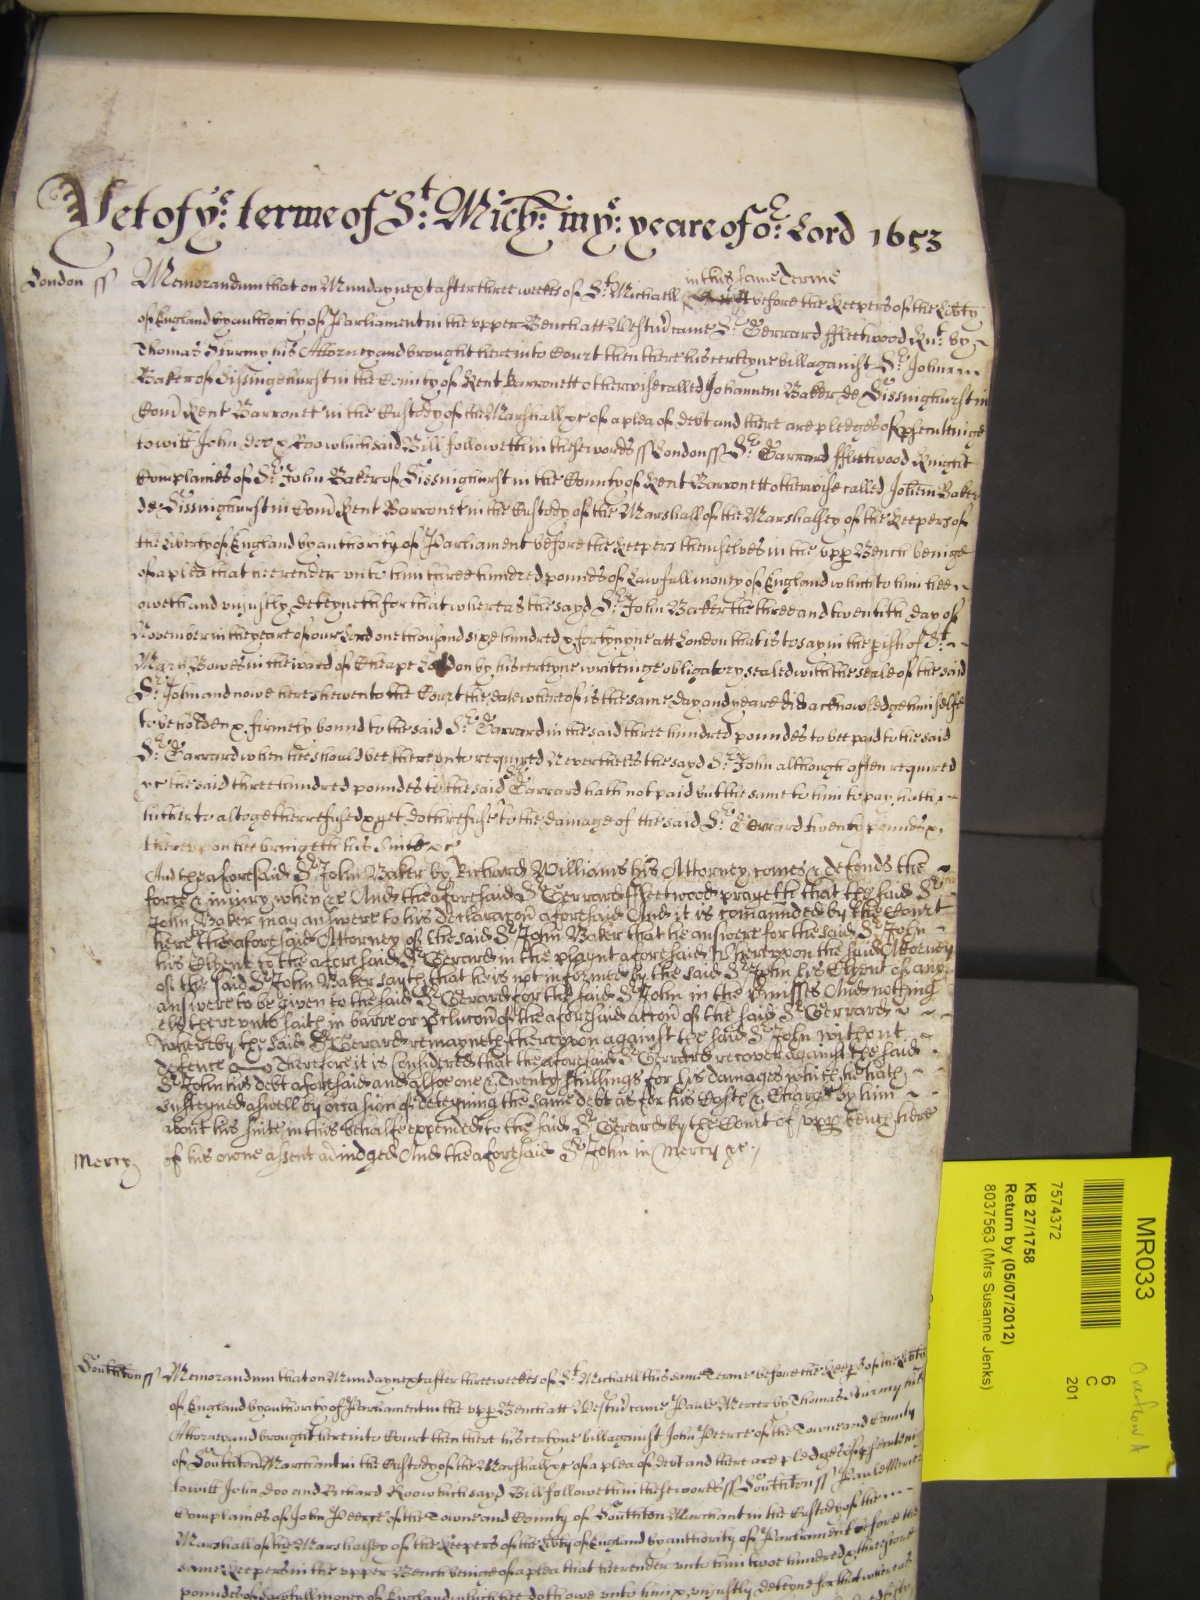 Yet of ye: terme of St: Mich: in ye: yeare of or: Lord 1653
London ss Memorandum that on Munday next after three weekes of St Michaell in this same Terme before the Keepers of the Libty
of England by authority of Parliament in the upper Bench att Westmr came Sr Gerrard ffleetwood Knt. by
Thomas Sturmy his Attorney and brought here into Court then there his certeyne bill against Sr John
Baker of Sissinghurst in the County of Kent Barronett otherwise called Johannem Baker de Sissinghurst in
Com Kent Barronet in the Custody of the Marshall &c of a plea of debt and there are pledges of psecutinge
to witt John doo & Roo which said Bill followeth in these words ss London ss Sr Garrard ffleetwood Knight
Complaines of Sr John Baker of Sissinghurst in the County of Kent Barronett otherwise called Johem Baker
de Sissinghurst in Com Kent Barronet in the Custody of the Marshall of the Marshalsey of the Keepers of
the Liberty of England by authority of Parliament before the Keepers themselves in the upp Bench beinge
of a plea that he render unto him three hundred pounds of Lawfull money of England which to him hee
oweth and unjustly deteyneth for that whereas the sayd Sr John Baker the three and twentith day of
November in the yeare of our Lord one thousand six hundred & forty nyne att London that is to say in the pish of St
Mary Bowe in the ward of Cheape London by his certeyne writtinge obligatory sealed with the seale of the said
Sr John and nowe here shewen to the Court the date whereof is the same day and yeare did acknowledge himselfe
to be holden & firmely bound to the said Sr Garrard in the said three hundred poundes to bee paid to the said
Sr Garrard when hee should bee thereunto required Neverthelesse the sayd Sr John although often required
&c the said three hundred poundes to the said Sr Garrard hath not paid but the same to him to pay hath
hitherto altogether refused & yet doth refuse to the damage of the said Sr Gerrard twenty pounds &
thereupon hee bringeth his suite &c
And the aforesaid Sr John Baker by Richard Williams his Attorney comes & defends the
force & injury when &c And the aforesaid Sr Gerrard ffleetwood prayeth that the said Sr
John Baker may answere to his declaracon aforesaid And it is comaunded by the Court
here the aforesaid Attorney of the said Sr John Baker that he answere for the said Sr John
his Clyent to the aforesaid Sr Gerard in the playnt aforesaid Whereupon the said Attorney
of the said Sr John Baker sayth that he is not informed by the said Sr John his Clyent of any
answere to be given to the said Sr Gerard for the said Sr John in the pmisses And nothing
els thereunto saith in barre or pclucon of the aforesaid accon of the said Sr Gerrard
Whereby the said Sr Gerard remayneth thereupon against the said Sr John without
defence Therefore it is considered that the aforesaid Sr Gerrard recover against the said
Sr John his debt aforesaid and alsoe one & Twenty shillings for his damages which he hath
susteyned aswell by occasion of deteyning the same debt as for his Costs & Charges by him
about his suite in this behalfe expended to the said Sr Gerard by the Court of upp bench here
Mercy of his owne assent adiudged And the aforesaid Sr John in Mercy &c
Southton ss Memorandum that on Munday next after three weekes of St Michaell this same Terme before the Keeps of the Libty
of England by authority of Parliament in the upp Bench att Westmr came Paule Mercer by Thomas Sturmy his
Attorney and brought here into Court then there his certeyne bill against John Peerce of the Towne and County
of Southton Marchant in the Custody of the Marshall &c of a plea of debt and there are pledges of psecuteing
to witt John Doo and Richard Roo which sayd Bill followeth in these words ss Southton ss Paule Mercer
Complaines of John Peerce of the Towne and County of Southton Marchant in the Custody of the
Marshall of the Marshalsey of the Keepers of the Libty of England by authority of Parliament before the
same Keepers in the upper Bench beinge of a plea that he render unto him two hundred & threscore
pounds of Lawfull money of England which hee doth owe unto him & unjustly deteyne for that whereas
MR033
6
C
201
7574372
KB 27/1758
Return by (05/07/2012)
8037563 (Mrs Susanne Jenks)
Overflow A